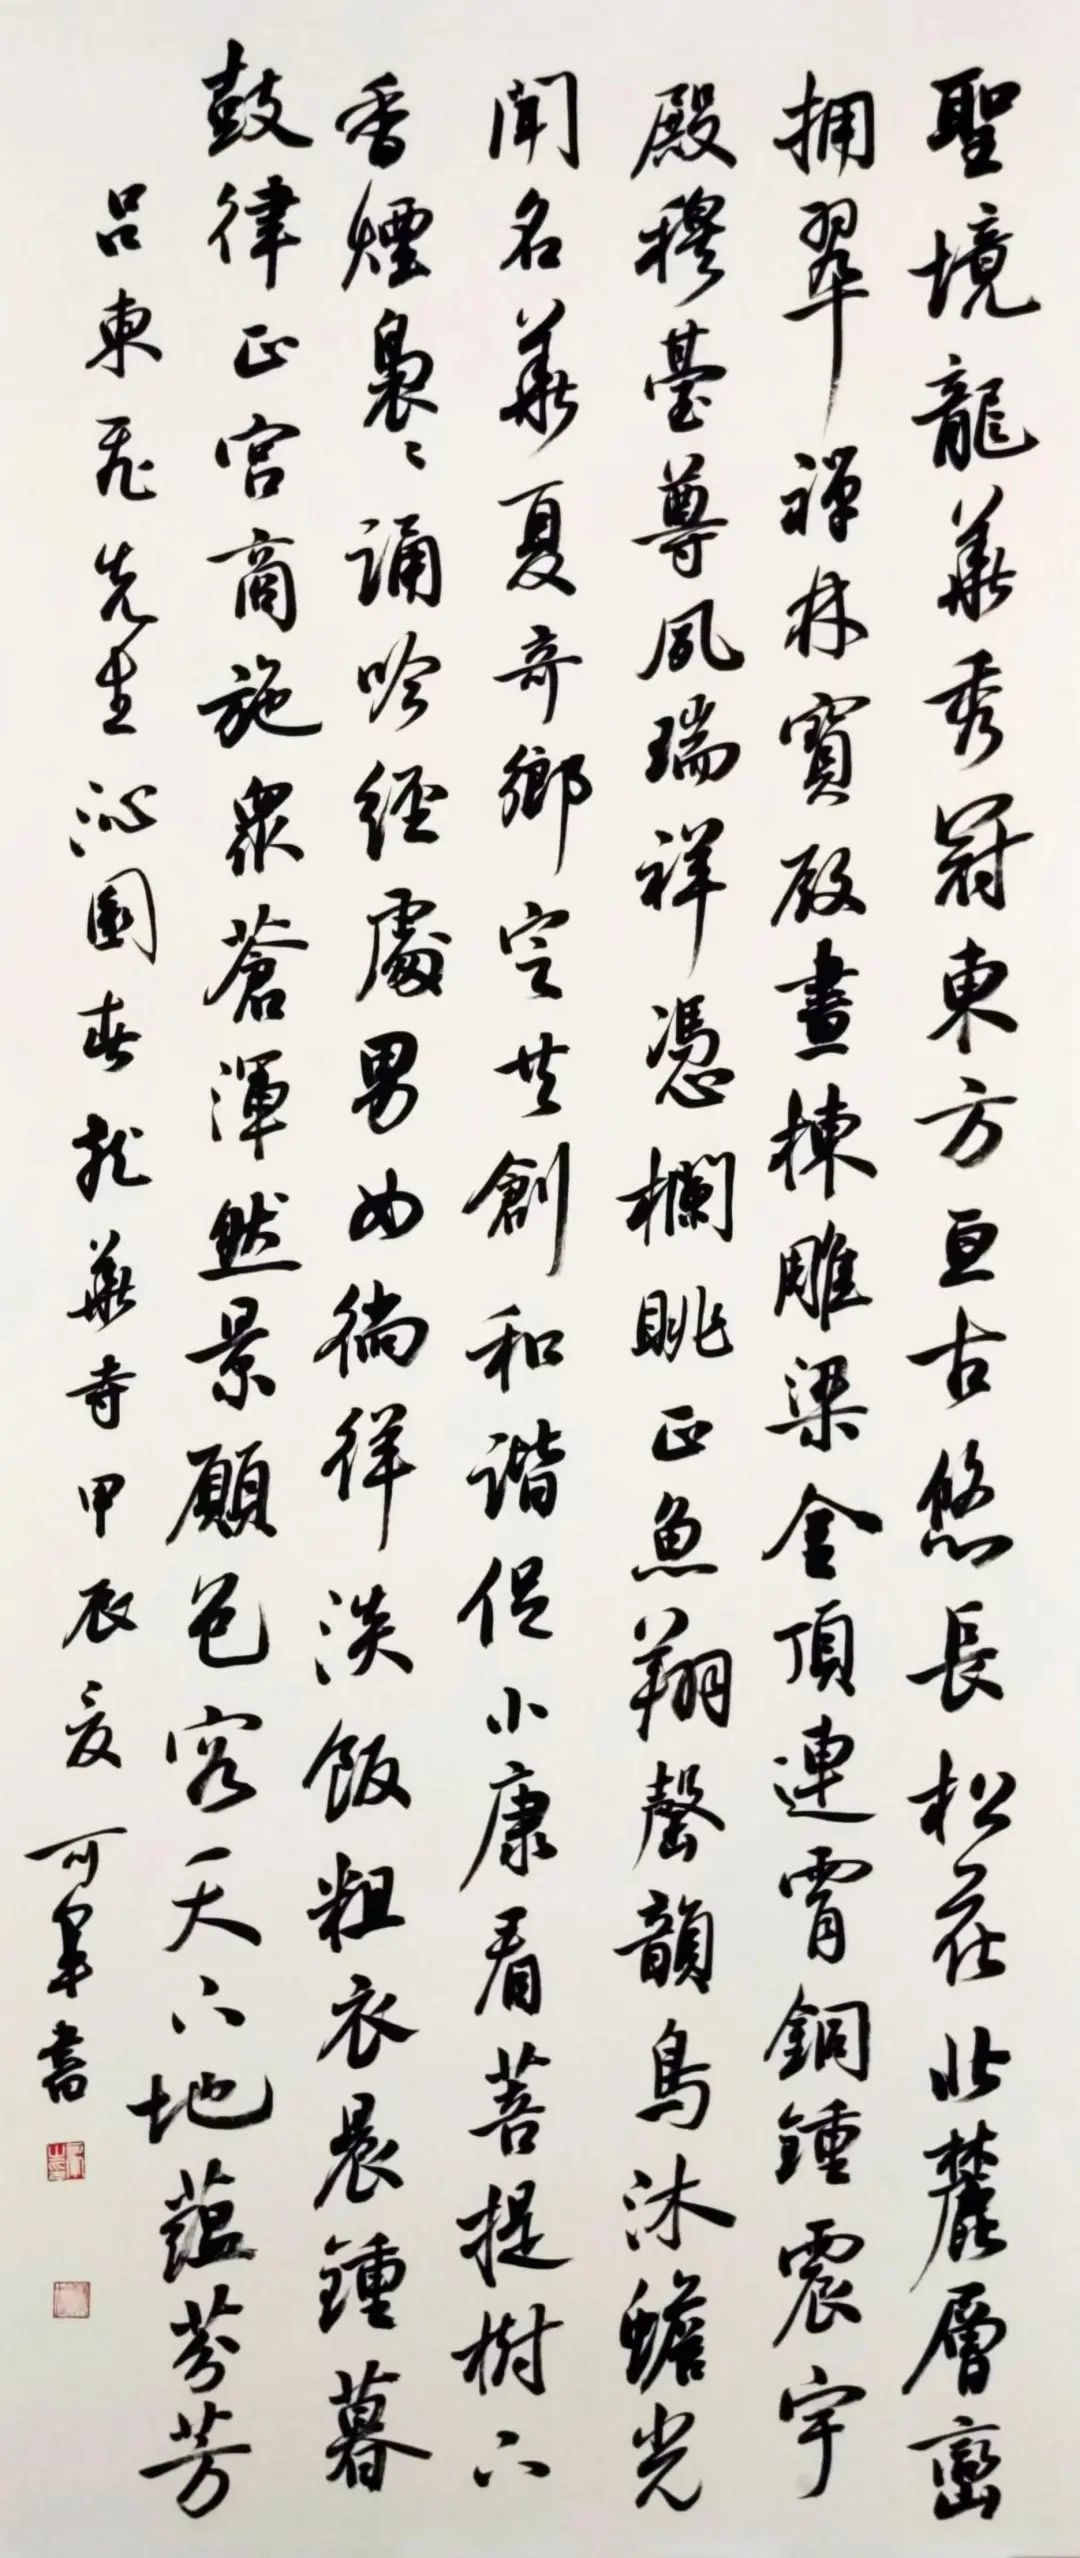 聖境龍華秀冠東方亘古悠長松在北麓層巒
擁翠禪林寶殿畫棟雕梁金頂連霄銅鍾震宇
殿穆臺尊夙瑞祥憑欄眺正魚翔磬韻鳥沐蟾光
聞名華夏奇鄉定共創和諧促小康看菩提樹下
香煙裊〻誦吟經處男女徜徉淡飯粗衣晨鍾暮
鼓律正宮商施眾蒼渾然景願包容天下地蘊芬芳
呂東飛先生沁園春龍華寺甲辰夏可軍書